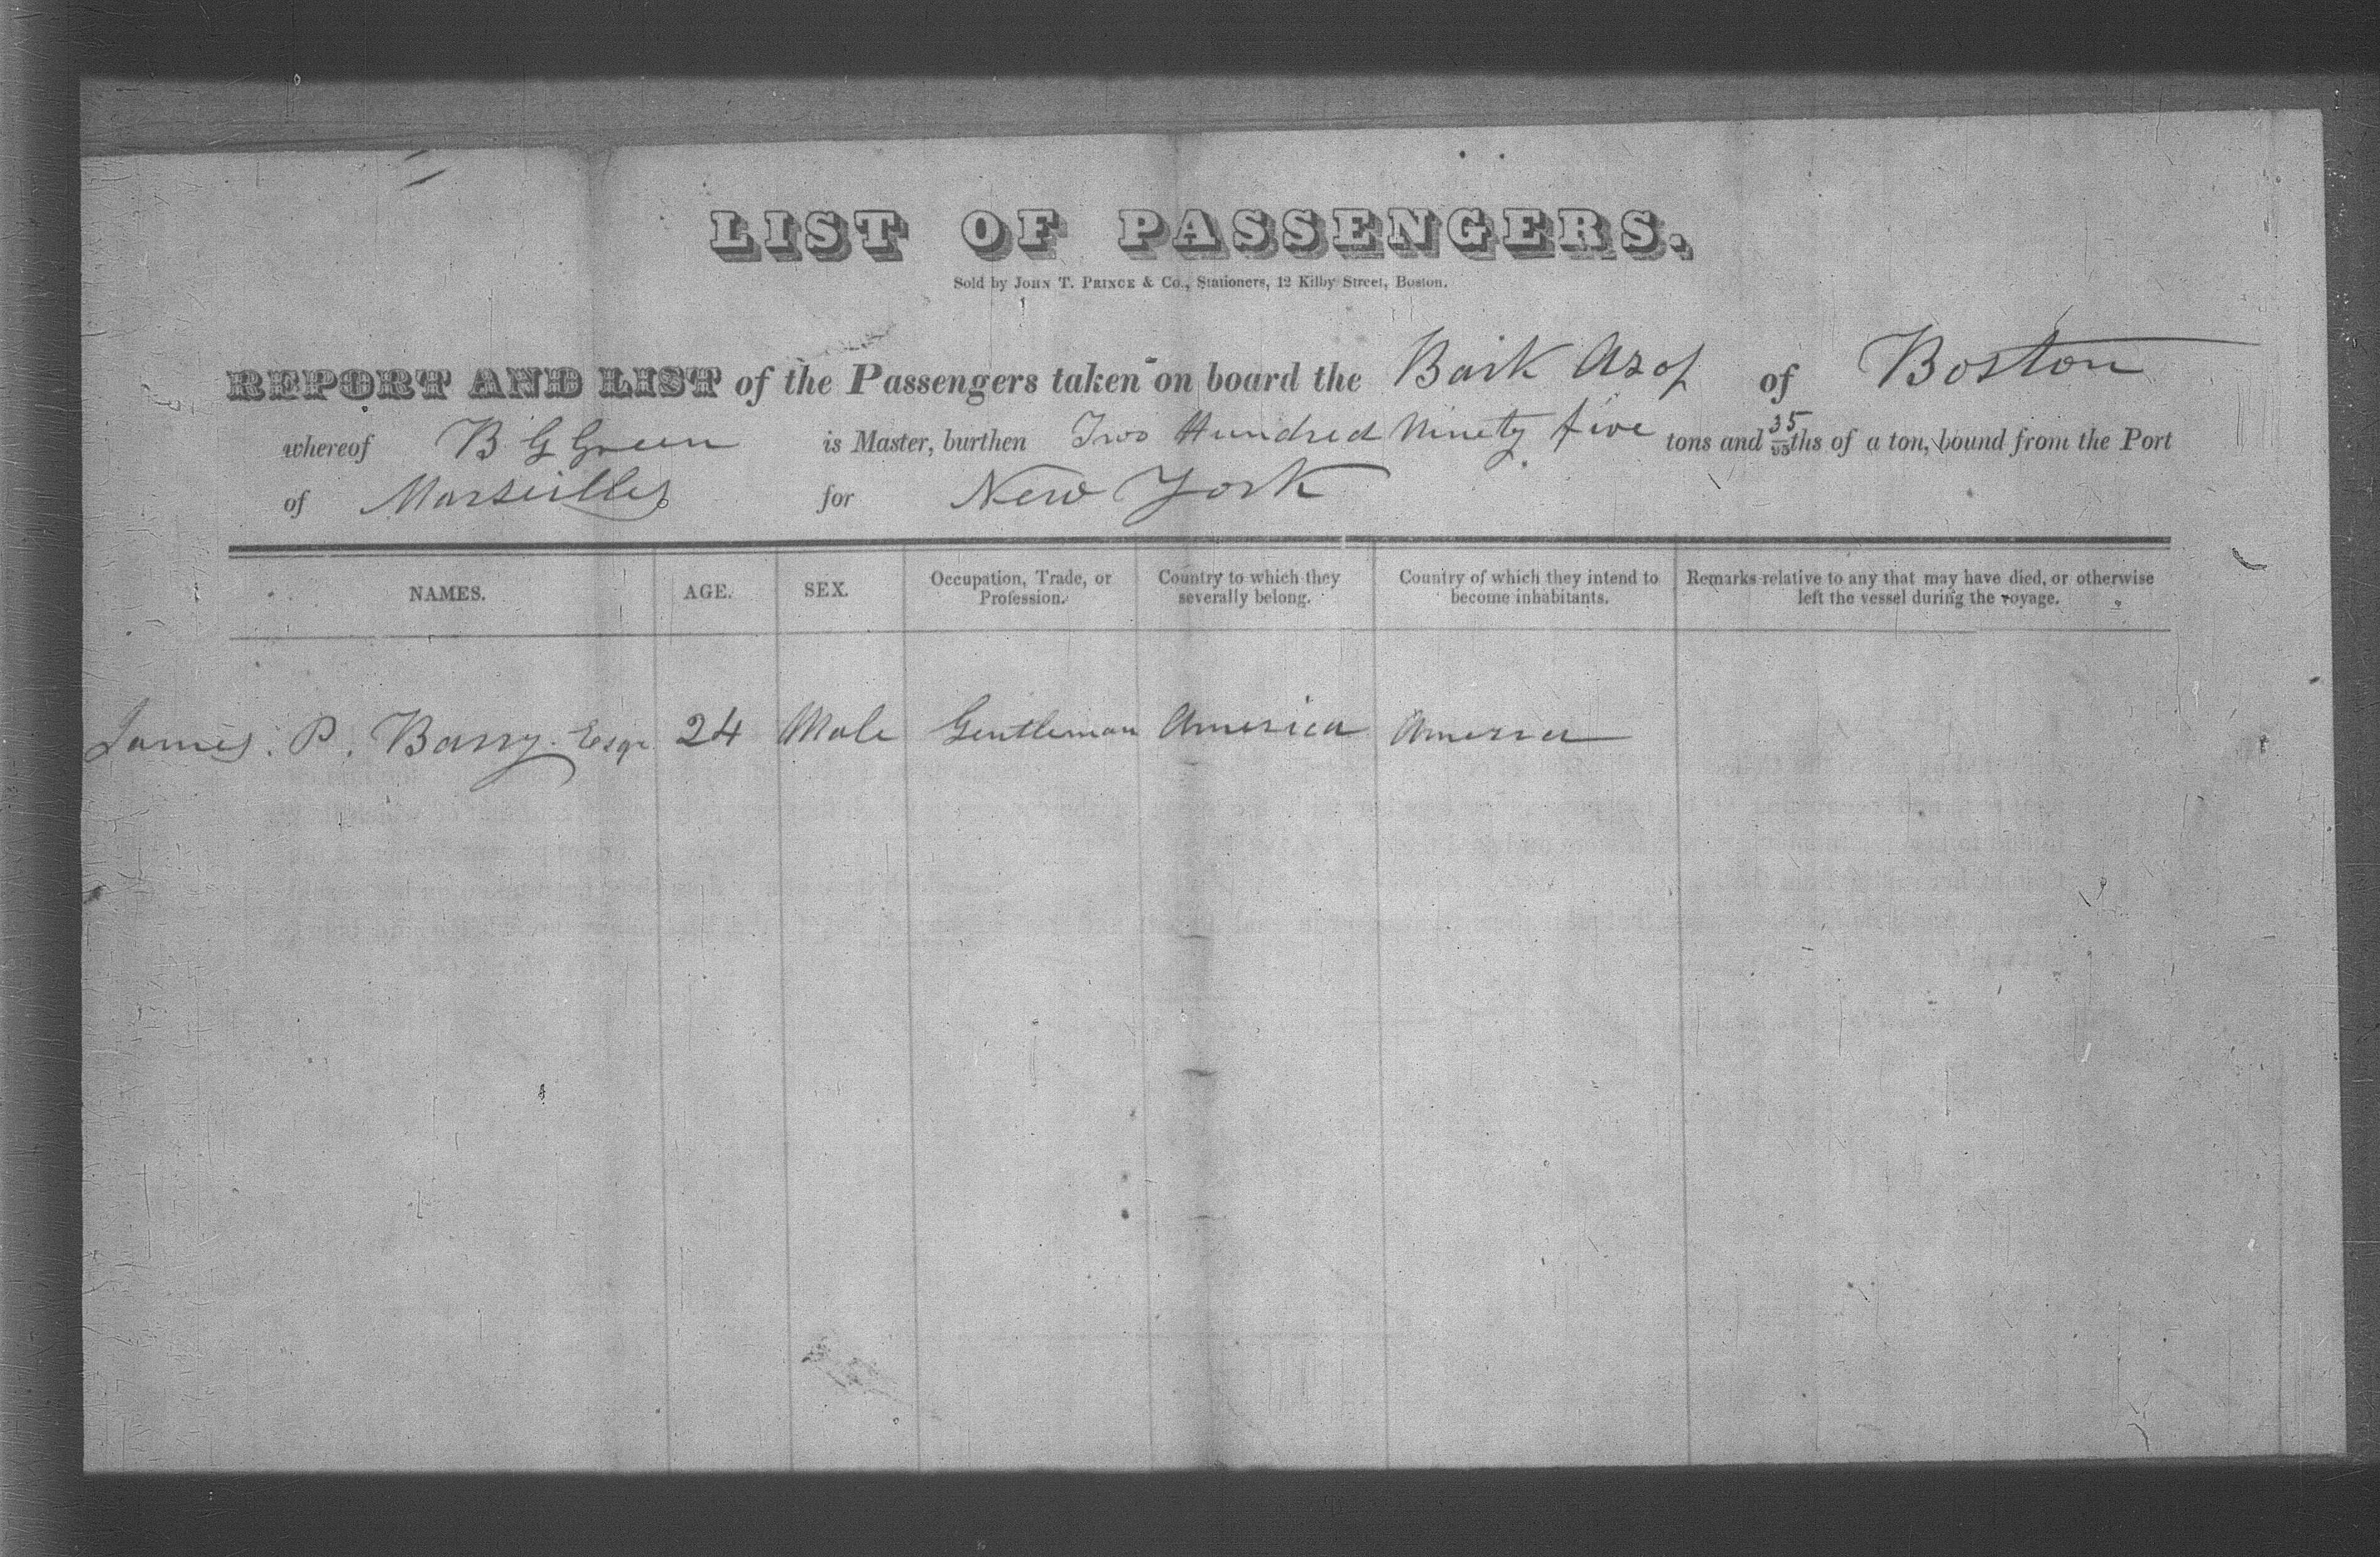 LIST OF PASSENGERS.
Sold by JOHN T. PRINCE & Co., Stationers, 12 Kilby Street, Boston.
REPORT AND LIST of the Passengers taken on board the Bark Azof of Boston
whereof B G Green is Master, burthen Two Hundred Ninety five tons and 35/95ths of a ton, bound from the Port
of Marseilles for New York
NAMES. AGE. SEX. Occupation, Trade, or Profession. Country to which they severally belong. Country of which they intend to become inhabitants. Remarks relative to any that may have died, or otherwise left the vessel during the voyage.
James. P. Barry. Esqr 24 Male Gentleman America America